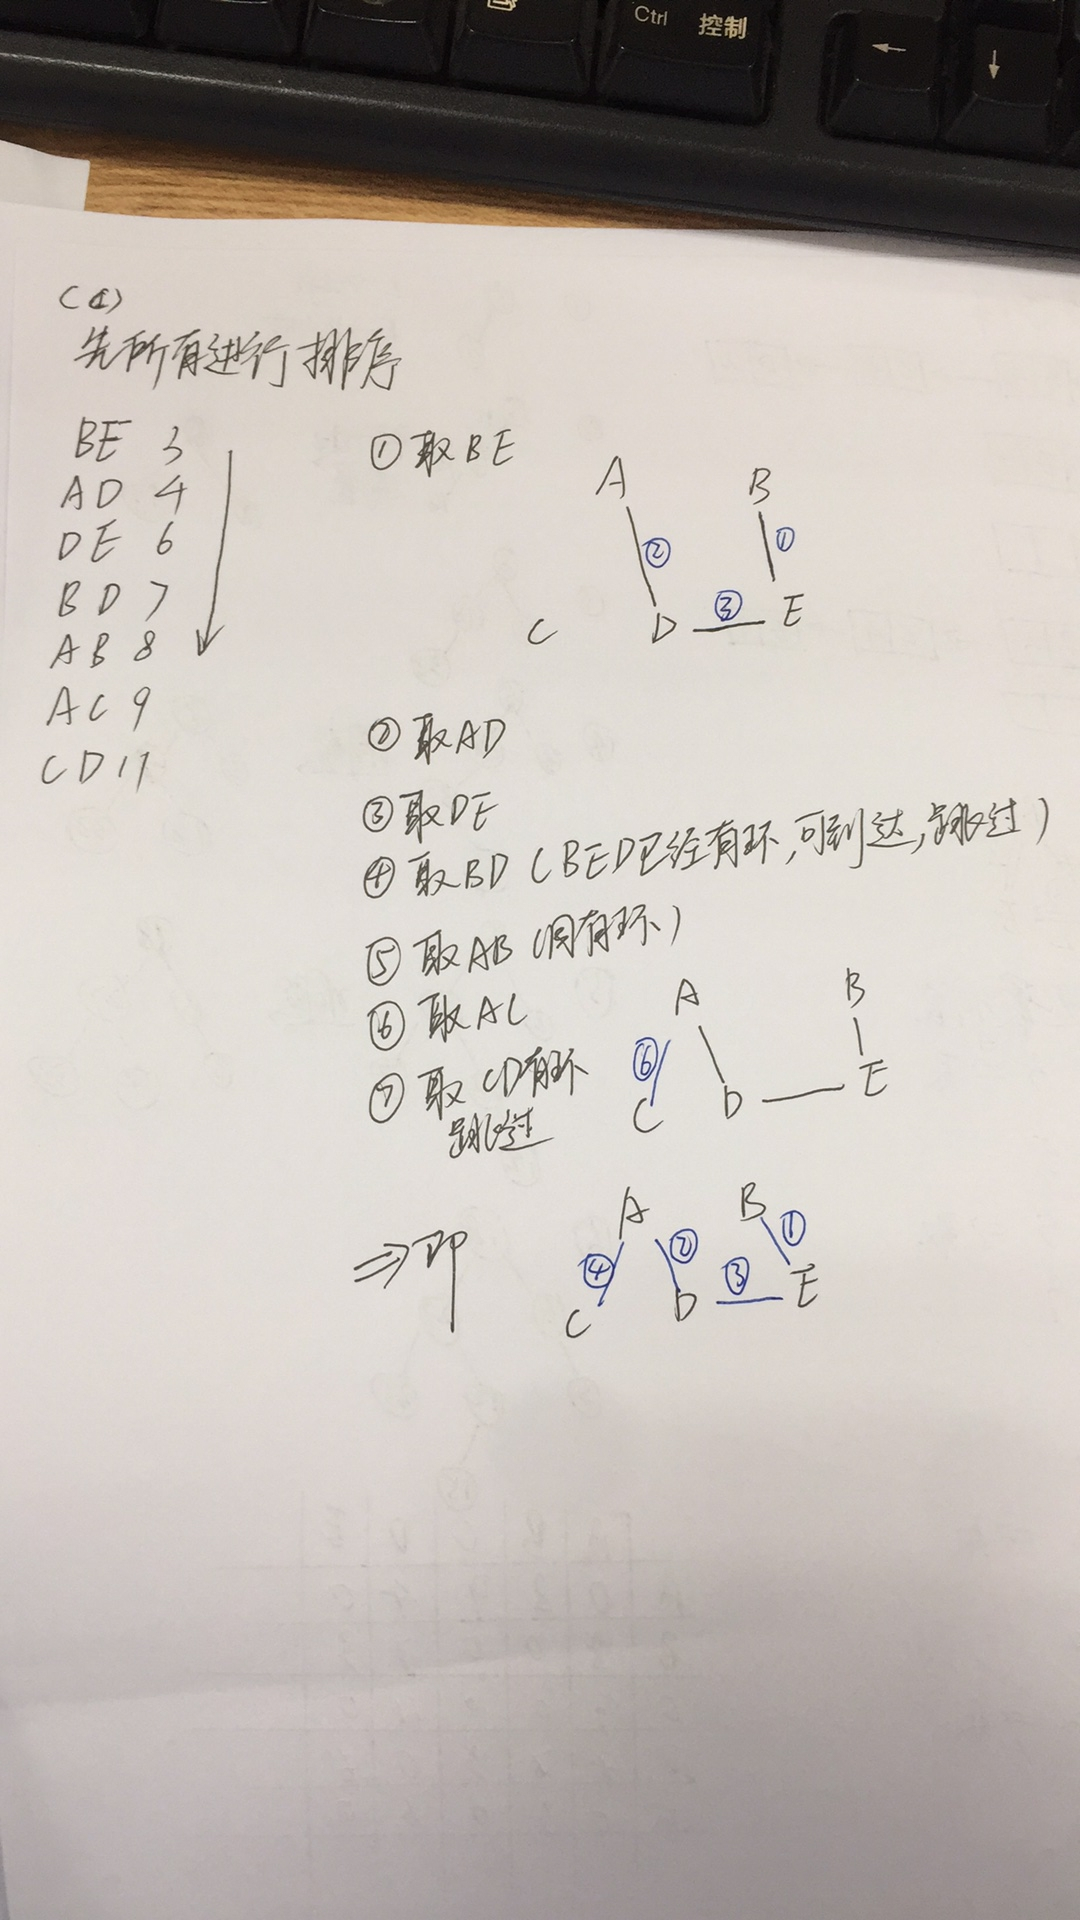 Ctrl 控制
←
↓
(C)
先所有进行排序
BE 3
AD 4
DE 6
BD 7
AB 8
AC 9
CD 11
①取BE
A B
② ①
③
C D E
②取AD
③取DE
④取BD(BED已经有环,可到达,跳过)
⑤取AB(同有环)
⑥取AC
⑦取CD有环
跳过
A B
⑥
C D E
⇒即
A B
④ ② ③ ①
C D E